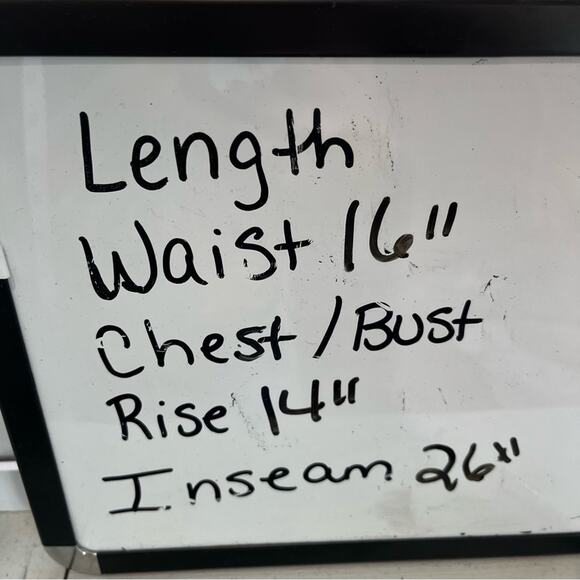 Length
Waist 16"
Chest/Bust
Rise 14"
Inseam 26"